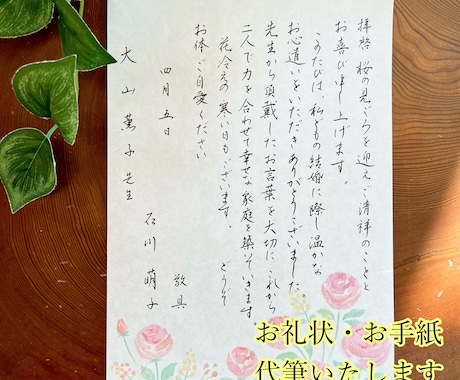 拝啓 桜の見ごろを迎え ご清祥のことと
お喜び申し上げます。
このたびは 私どもの結婚に際し 温かな
お心遣いをいただきありがとうございました
先生から頂戴したお言葉を大切に これから
二人で力を合わせて幸せな家庭を築いていきます
花冷えの寒い日もございます。どうぞ
お体ご自愛ください
敬具
四月五日
石川 萌子
大山薫子先生
お礼状・お手紙
代筆いたします